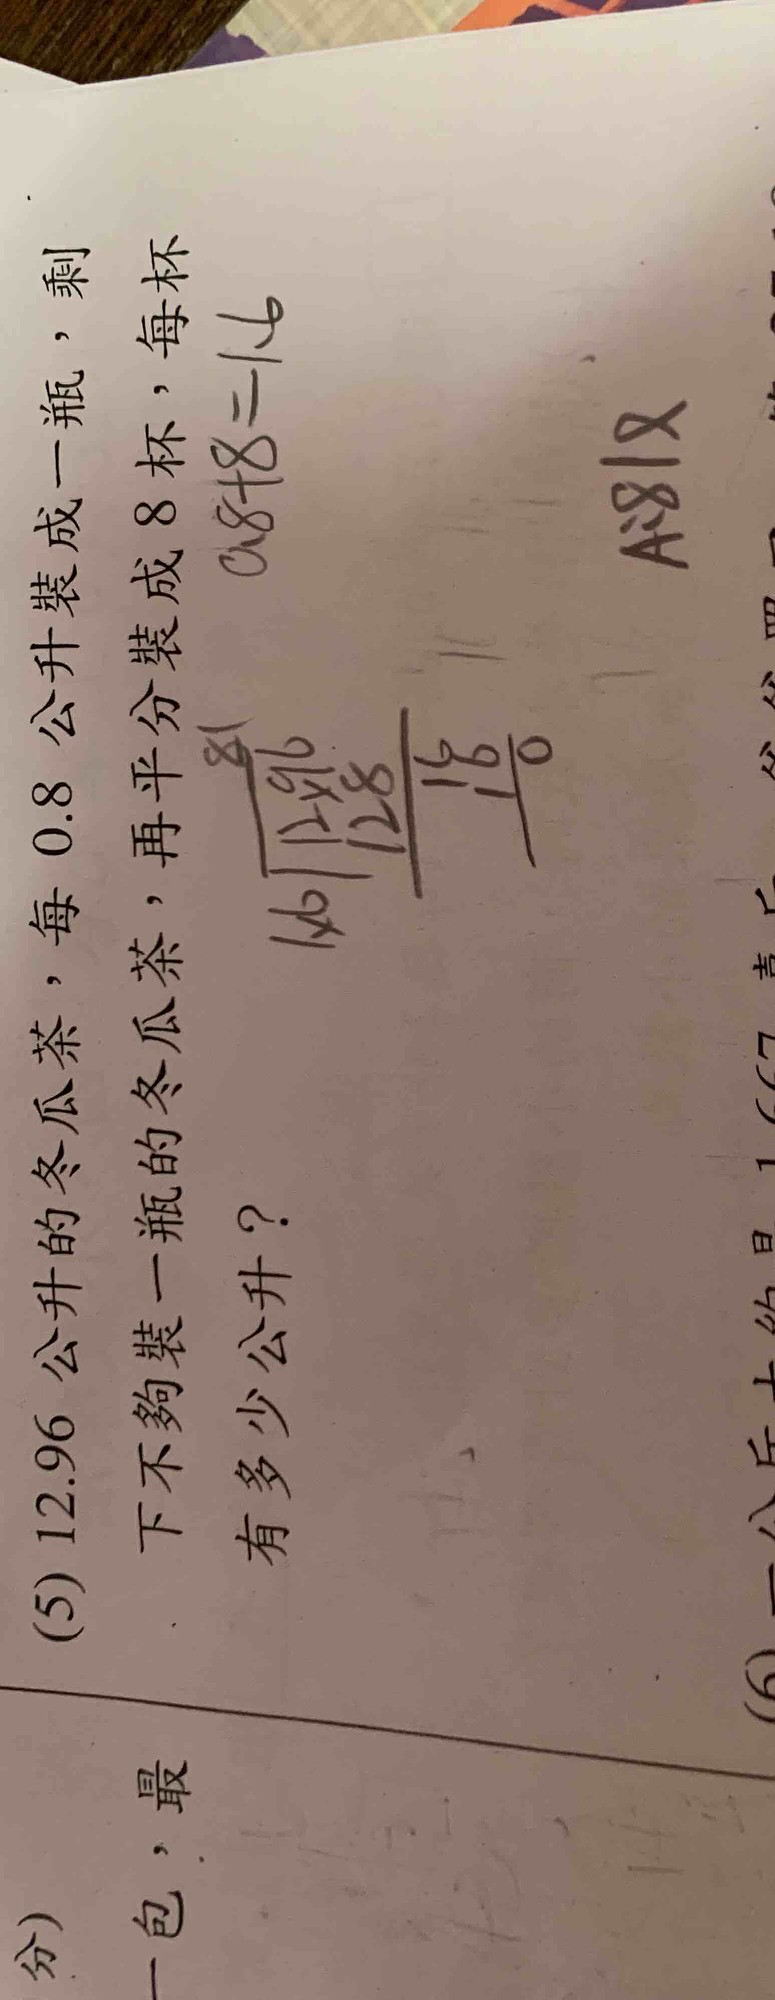 (5) 12.96 公升的冬瓜茶，每 0.8 公升裝成一瓶，剩
下不夠裝一瓶的冬瓜茶，再平分裝成 8 杯，每杯
有多少公升？
0.8+8=1.6
81
12.96
128
16
16
0
分)
一包，最
(6)